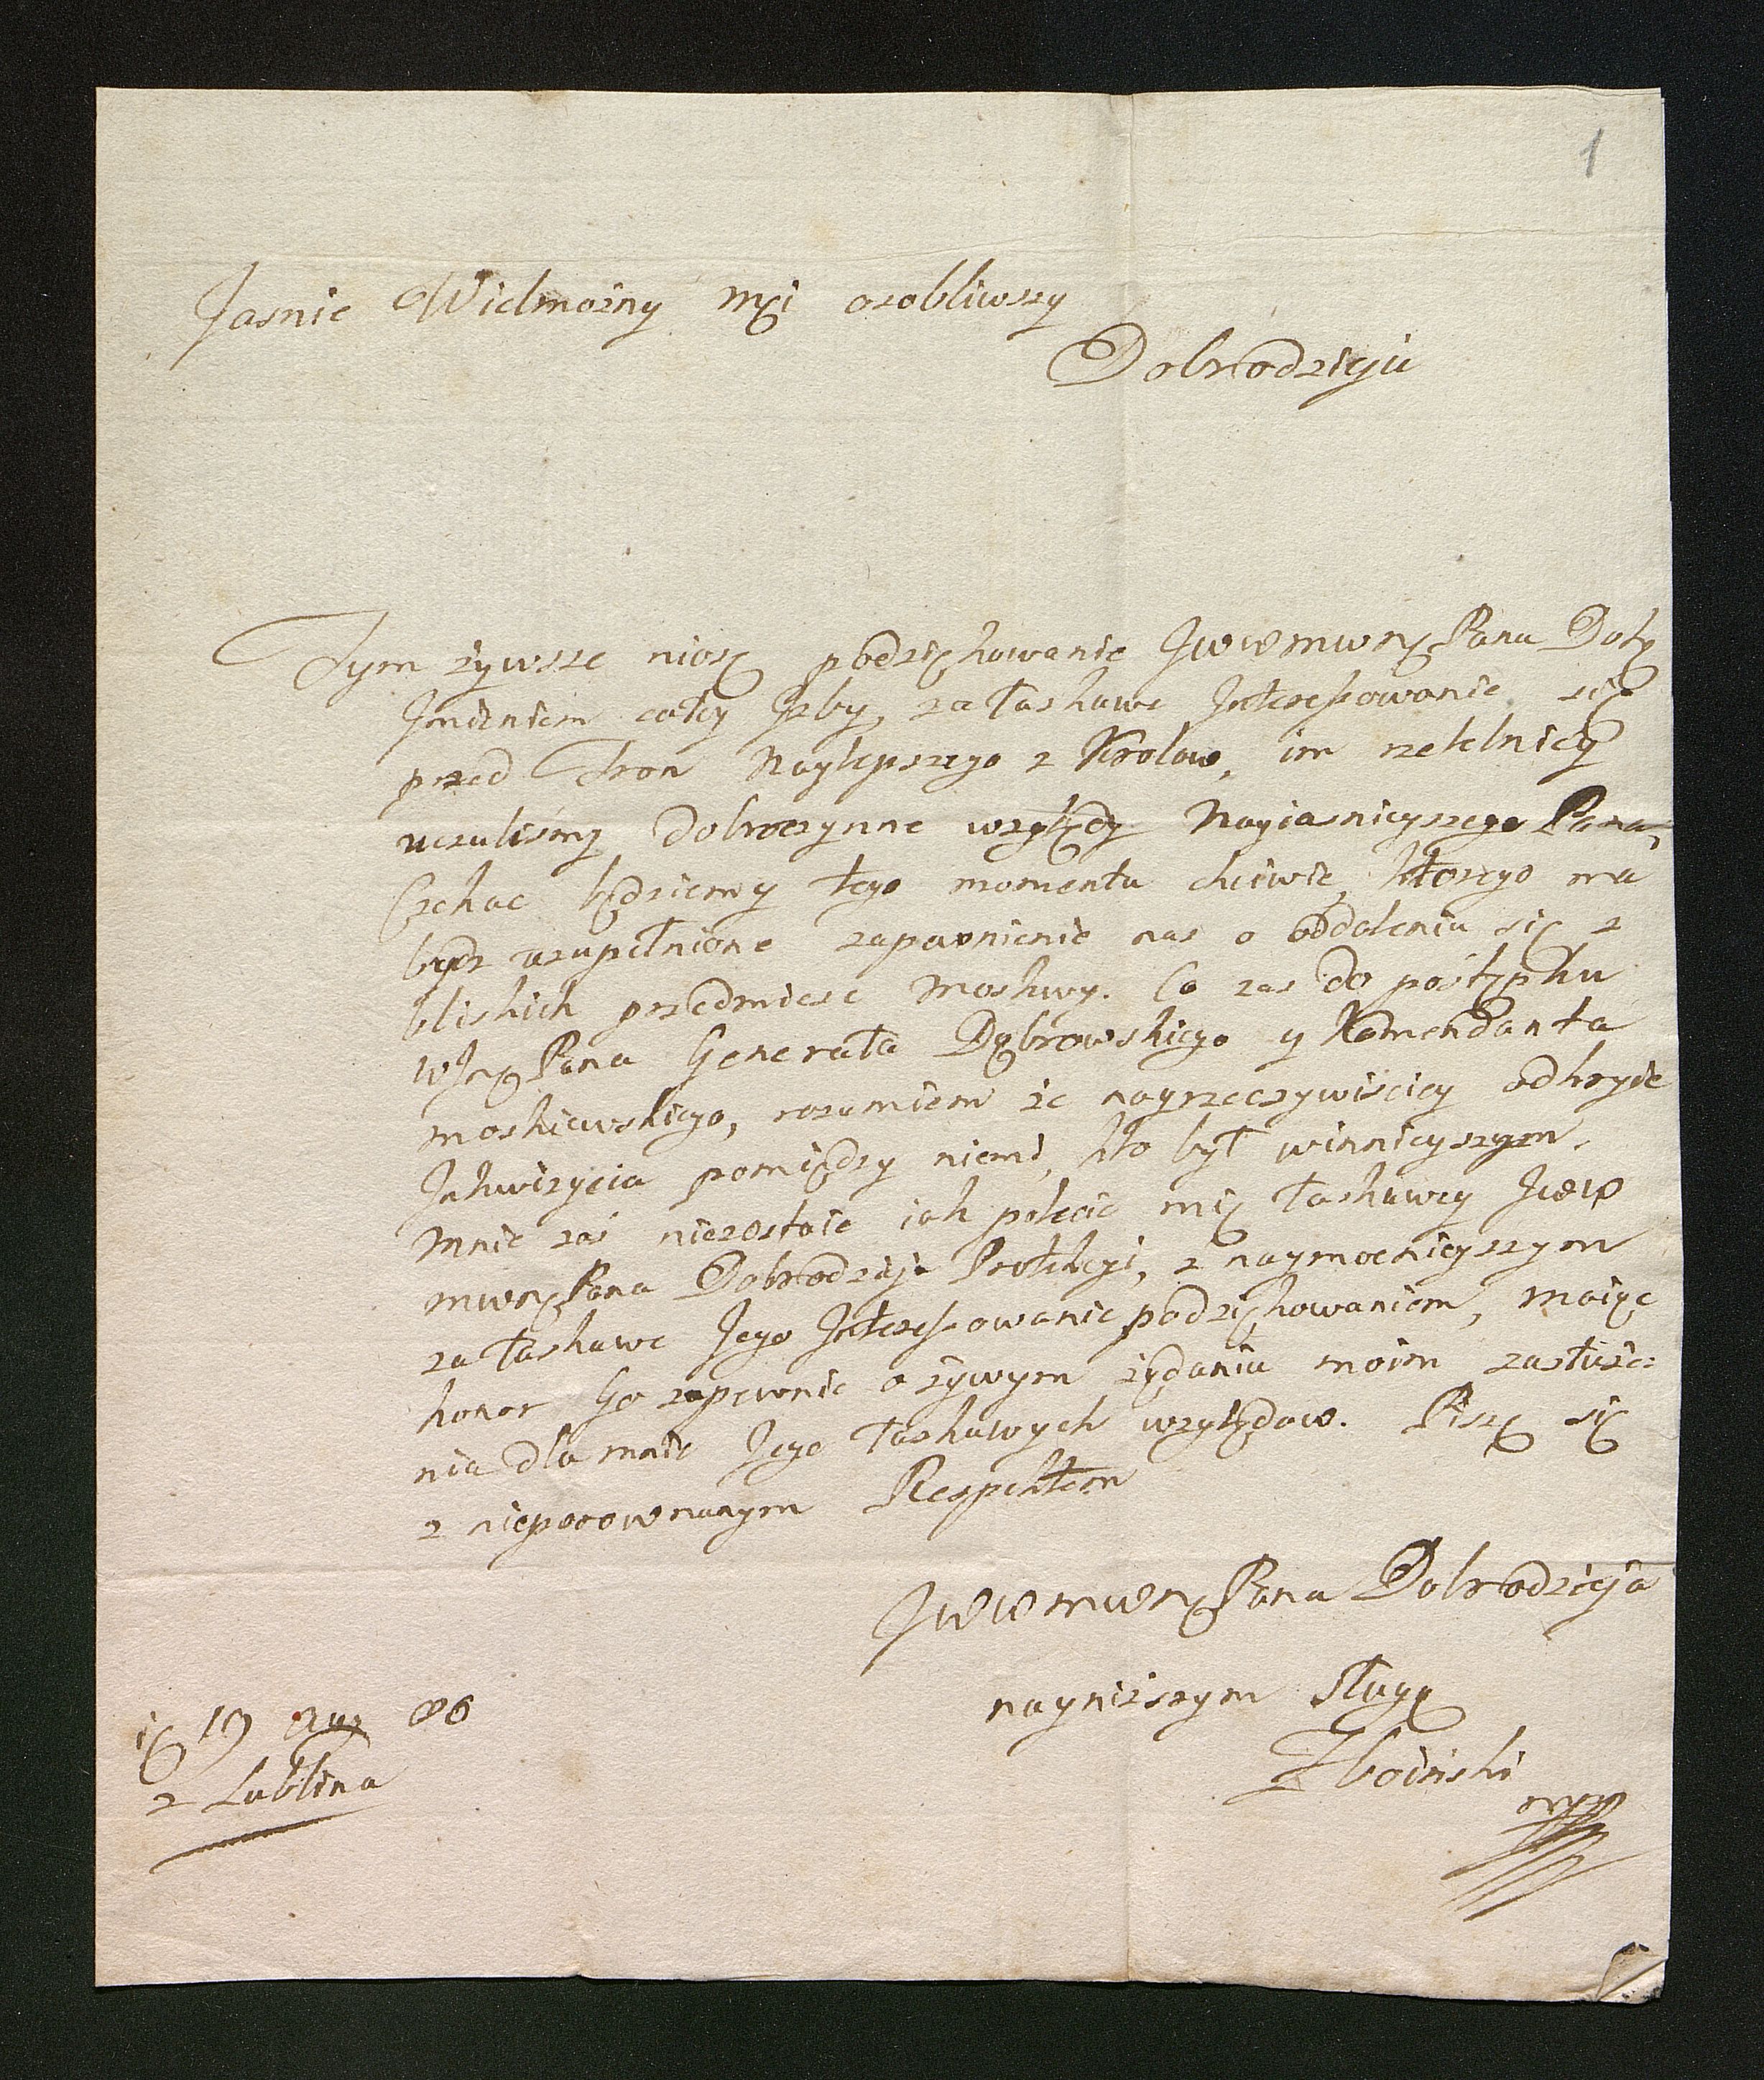 1
Jasnie Wielmożny Mći osobliwszy
Dobrodzieju
Tym żywsze niosę podziękowanie JWWMWMPana Dob:
Jmieniem całey Jzby, za łaskawe Jnteressowanie się
przed Tron Naylepszego z Krolow, im rzetelniey
uczuliśmy dobroczynne względy Nayiasnieyszego Pana,
Czekac będziemy tego momentu chciwie, ktorego ma
bydz uzupełnione zapewnienie nas o oddaleniu się z
bliskich przedmiesc Moskwy. Co zas do postępku
WJPana Generała Dąbrowskiego y Komendanta
moskiewskiego, rozumiem że nayrzeczywiściey odkryie
Jnkwizycia pomiędzy niemi, kto był winnieyszym.
Mnie zaś niezostaie iak polecic mię łaskawey JWW
MWMPana Dobrodzieja Protekcyi, z naymocnieyszym
za łaskawe Jego Jnteressowanie podziękowaniem, maiąc
honor Go zapewnic o żywym żądaniu moim zasłuże:
nia dla mnie Jego łaskawych względow. Piszę się
z nieporownanym Respektem
JWWMWMPana Dobrodzieja
nayniższym sługą
Zboiński
19 Aug 86
z Lublina